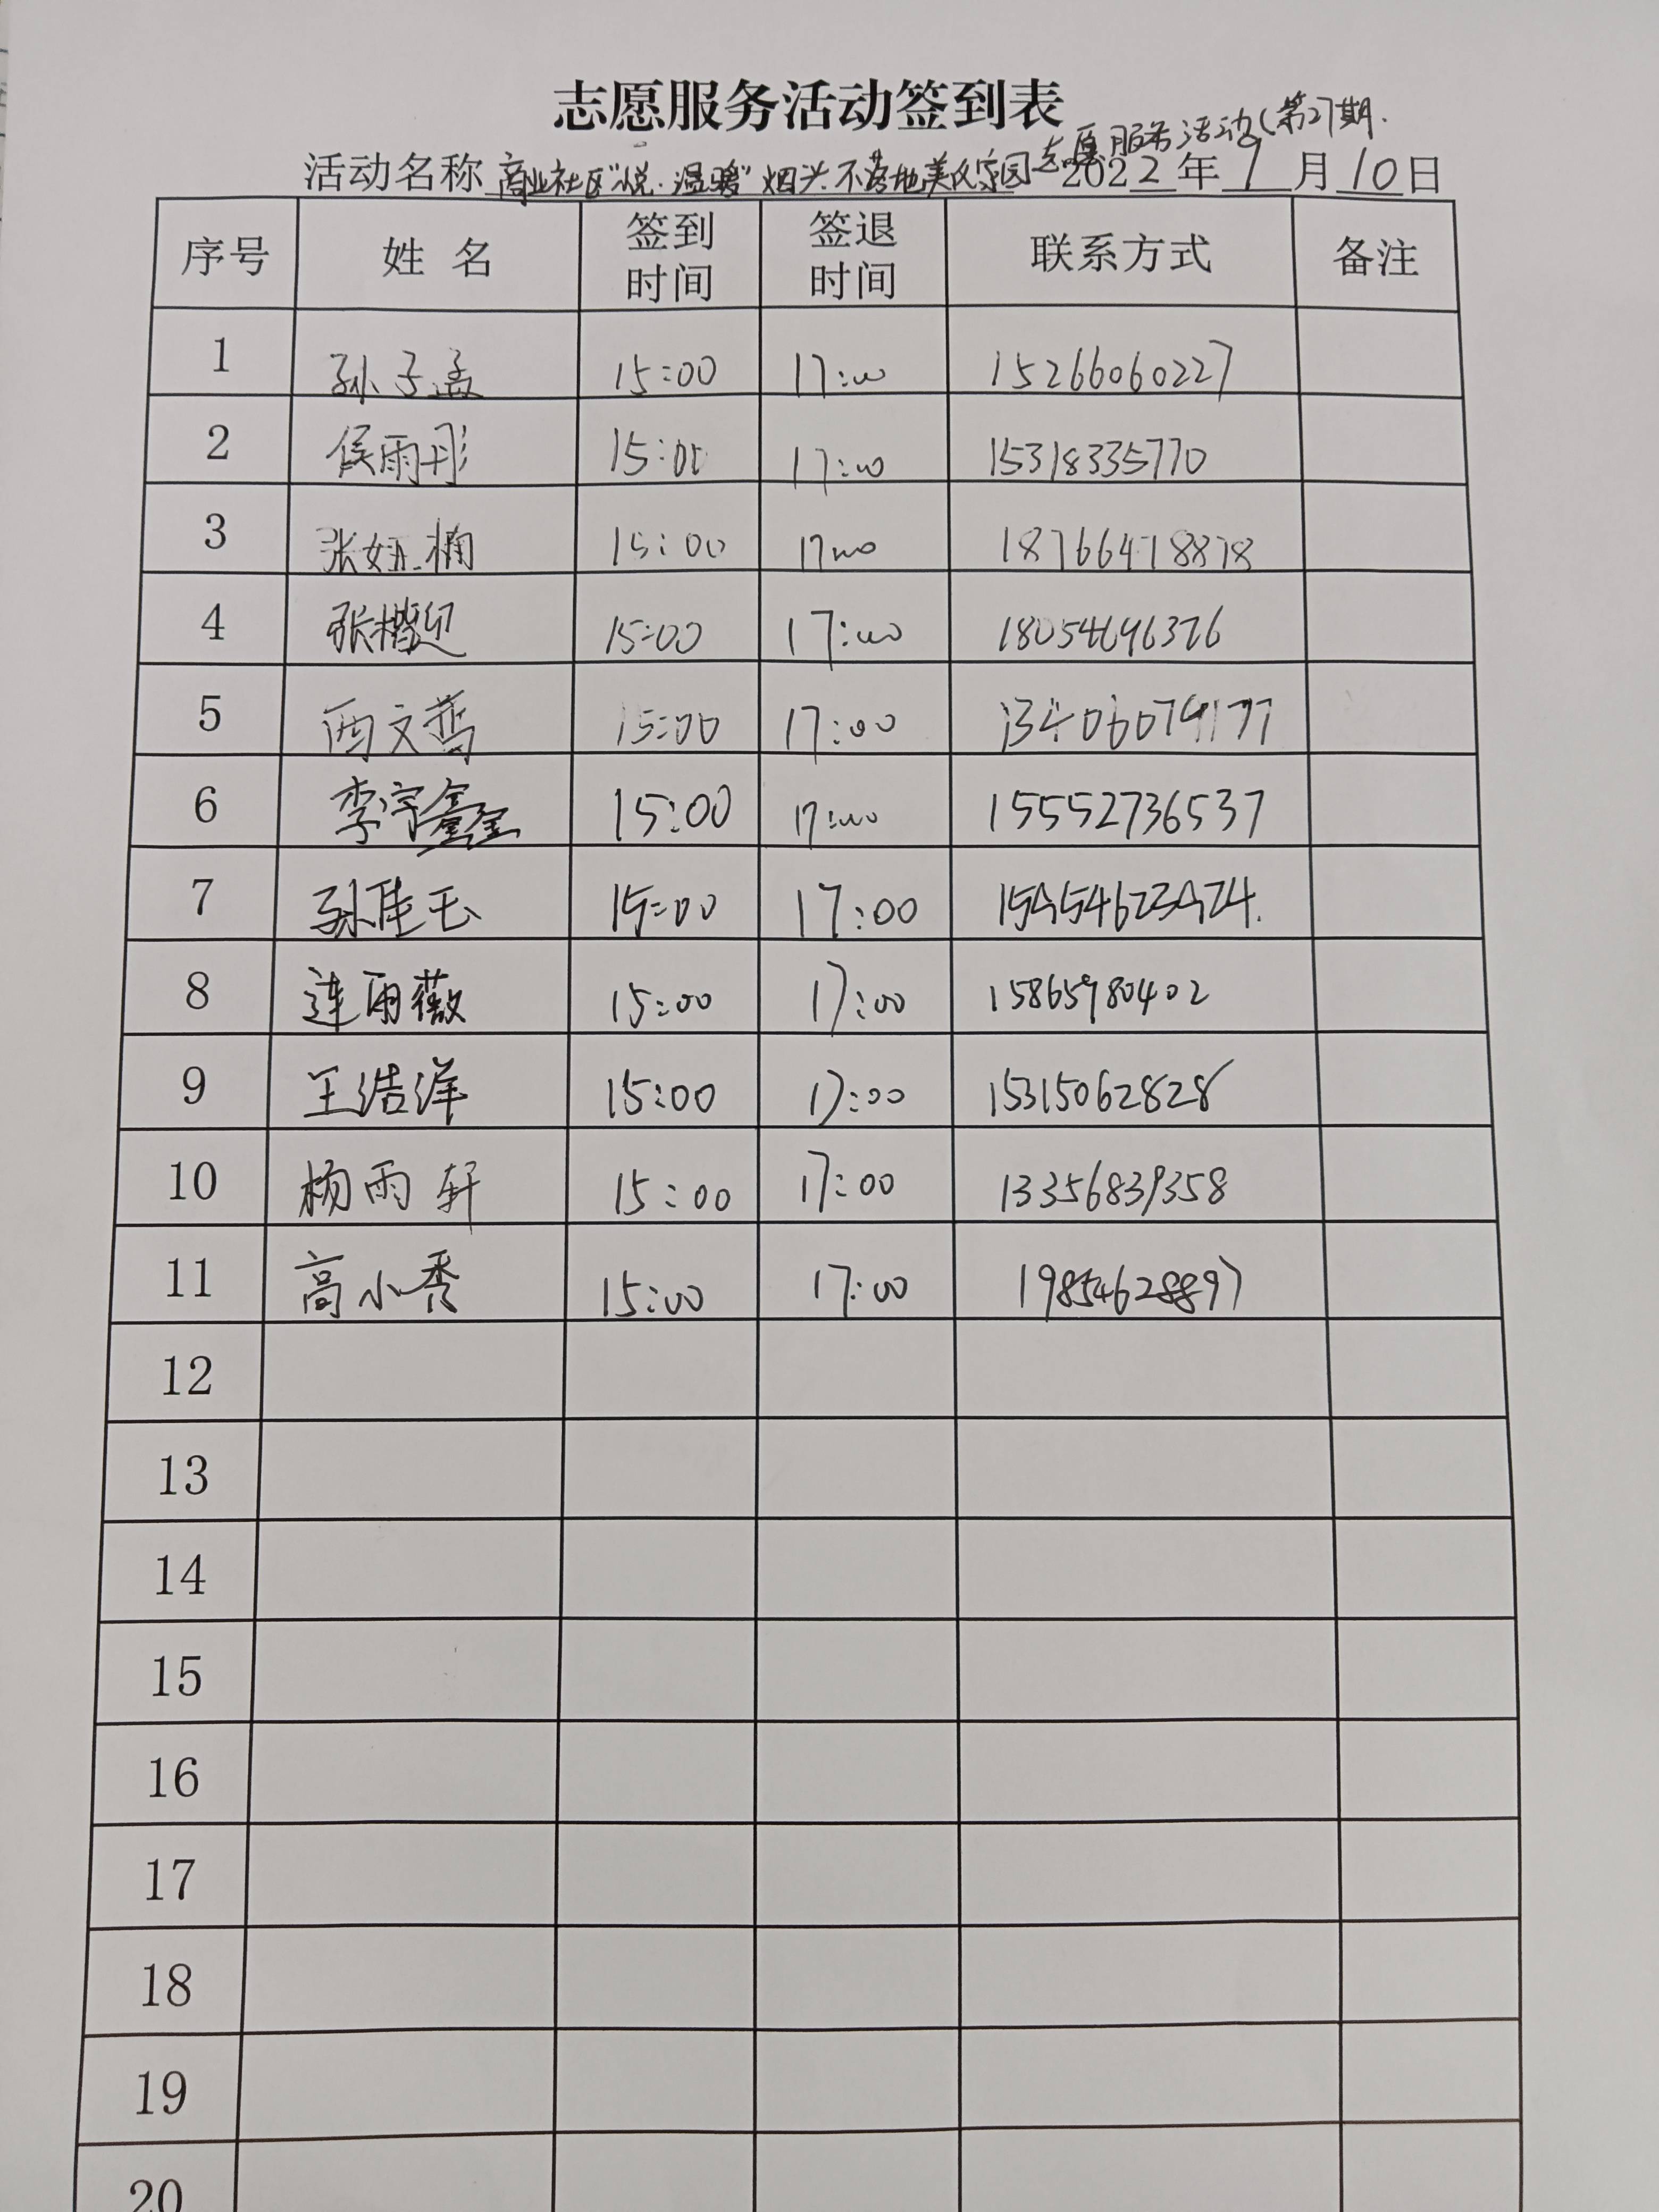 志愿服务活动签到表
志愿服务活动(第27期.
活动名称 商业社区"悦·温暖"烟头不落地美化家园 2022年9月10日
序号 姓名 签到时间 签退时间 联系方式 备注
1 孙子孟 15:00 17:00 15266060227
2 侯雨彤 15:00 17:00 15318335770
3 张娅楠 15:00 17:00 18766478878
4 张楷迎 15:00 17:00 18054696376
5 西文哲 15:00 17:00 13406079177
6 李宇鑫 15:00 17:00 15552736537
7 孙佳玉 15:00 17:00 15954623924.
8 连雨薇 15:00 17:00 15865980402
9 王浩洋 15:00 17:00 15315062828
10 杨雨轩 15:00 17:00 13356839358
11 高小秀 15:00 17:00 19854628897
12
13
14
15
16
17
18
19
20